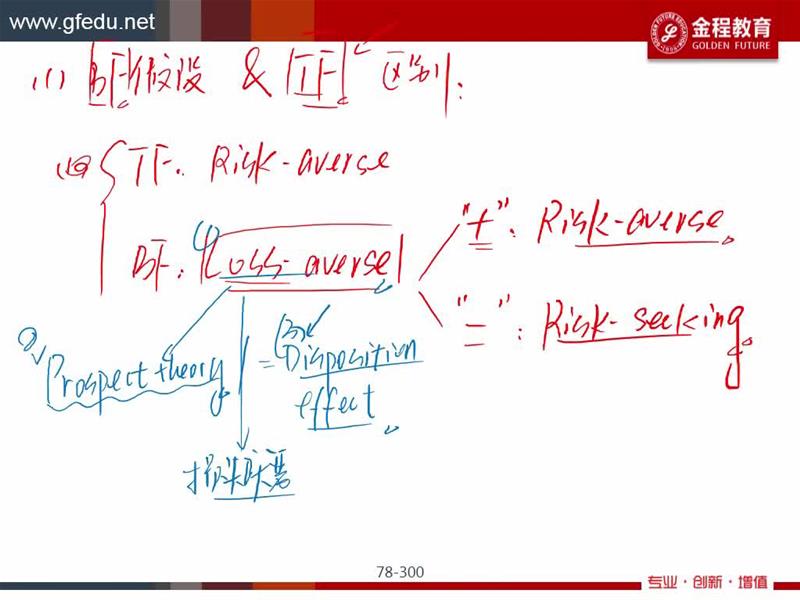 www.gfedu.net
金程教育
GOLDEN FUTURE
(1) BF假设 & TF 区别:
TF: Risk-averse
BF: Loss-averse
"+": Risk-averse
"-": Risk-seeking
(2) Prospect theory
= (3) Disposition
effect
损失厌恶
78-300
专业·创新·增值